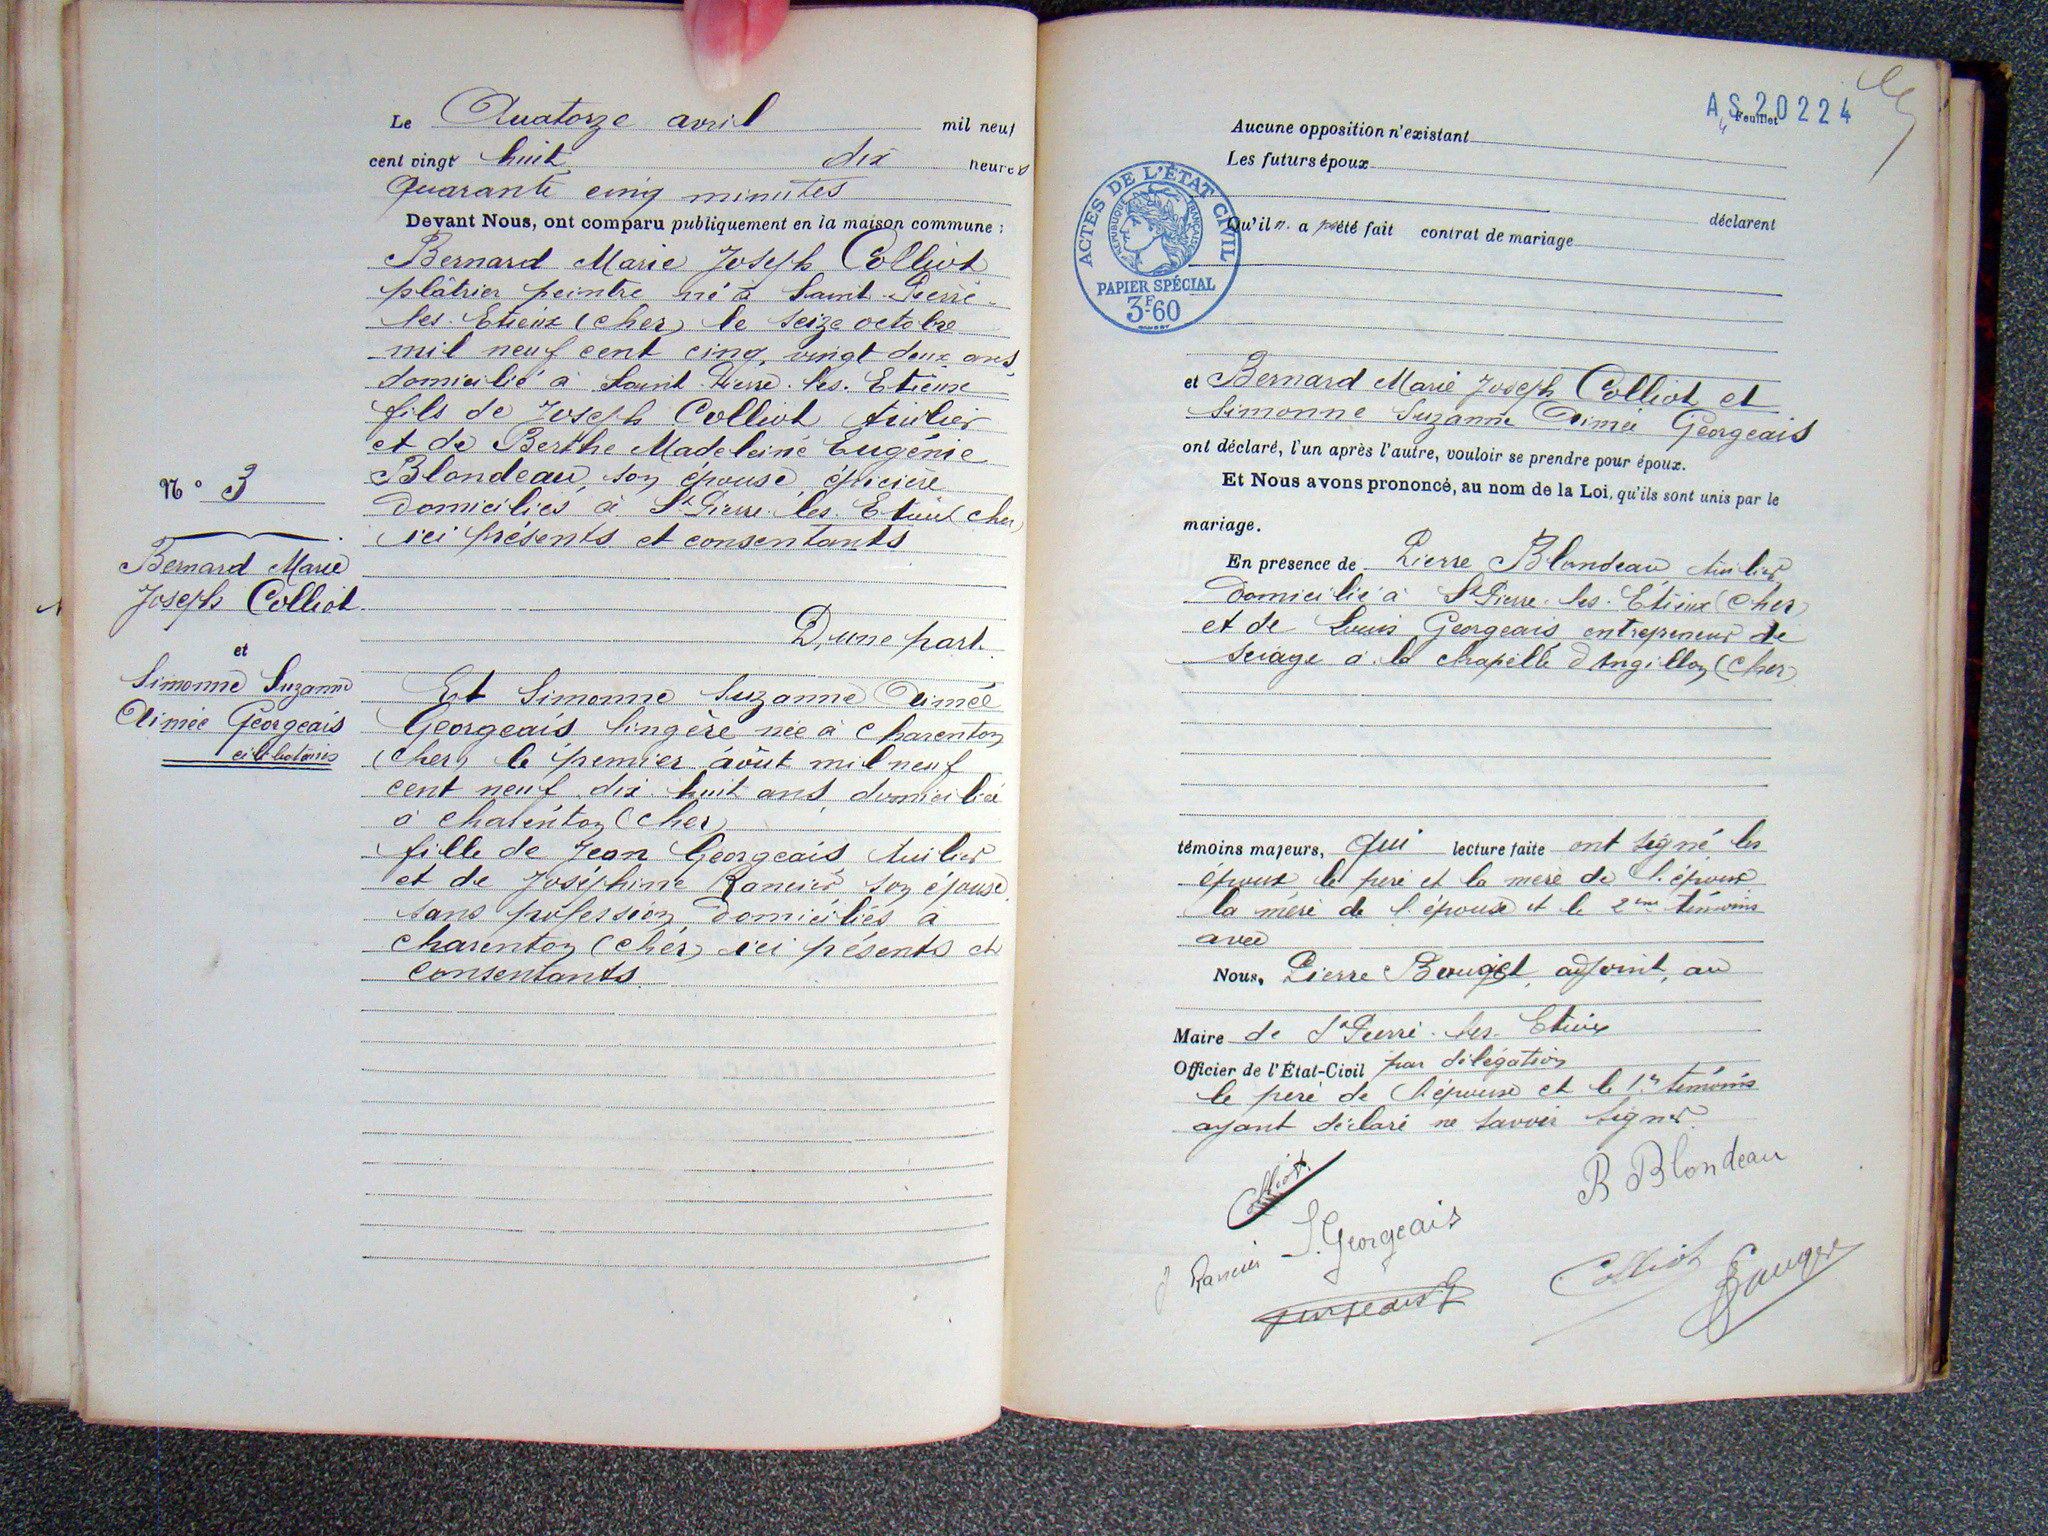 Le Quatorze avril mil neuf
cent vingt huit dix heures
quarante cinq minutes
Devant Nous, ont comparu publiquement en la maison commune :
Bernard Marie Joseph Colliot
plâtrier peintre né à Saint-Pierre-
les-Etieux (Cher) le seize octobre
mil neuf cent cinq, vingt deux ans
domicilié à Saint-Pierre-les-Etieux
fils de Joseph Colliot tuilier
et de Berthe Madeleine Eugénie
Blondeau, son épouse, épicière
domiciliés à St Pierre-les-Etieux (Cher)
ici présents et consentants
D'une part.
N° 3
Bernard Marie
Joseph Colliot
et
Simonne Suzanne
Aimée Georgeais
célibataires
Et Simonne Suzanne Aimée
Georgeais lingère née à Charenton
(Cher) le premier août mil neuf
cent neuf, dix huit ans, domiciliée
à Charenton (Cher)
fille de Jean Georgeais tuilier
et de Joséphine Rancier son épouse
sans profession domiciliés à
Charenton (Cher) ici présents et
consentants.
AS 20224
Feuillet
Aucune opposition n'existant
Les futurs époux
déclarent
Qu'il n. a pas été fait contrat de mariage
ACTES DE L'ÉTAT CIVIL
RÉPUBLIQUE FRANÇAISE
PAPIER SPÉCIAL
3F60
et Bernard Marie Joseph Colliot et
Simonne Suzanne Aimée Georgeais
ont déclaré, l'un après l'autre, vouloir se prendre pour époux.
Et Nous avons prononcé, au nom de la Loi, qu'ils sont unis par le
mariage.
En présence de Pierre Blondeau tuilier
domicilié à St Pierre-les-Etieux (Cher)
et de Louis Georgeais entrepreneur de
sciage à la Chapelle d'Angillon (Cher)
témoins majeurs, qui lecture faite ont signé les
époux le père et la mère de l'époux
la mère de l'épouse et le 2me témoins
avec
Nous, Pierre Bouget, adjoint, au
Maire de St Pierre-les-Etieux
Officier de l'État-Civil par délégation
le père de l'épouse et le 1er témoins
ayant déclaré ne savoir signer.
Colliot
B Blondeau
S. Georgeais
J Rancier
Georgeais
Colliot